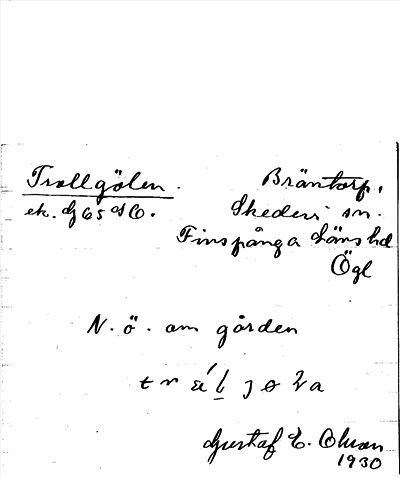 Trollgölen.
ek. dj 65 d O.
Bräntorp,
Skedevi sn.
Finspånga läns hd
Ögl
N. ö. om gården
Gustaf E. Olsson
1930